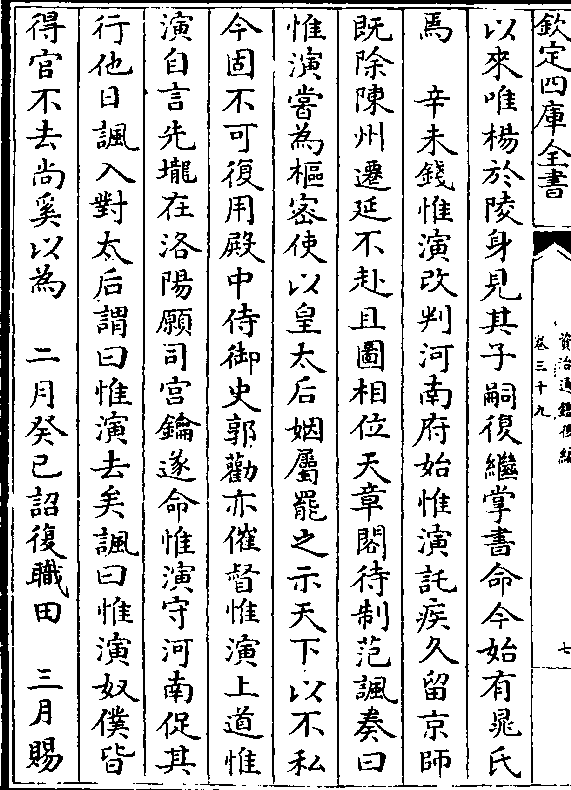 欽定四庫全書
資治通鑑後編
卷三十九
七
以來唯楊於陵身見其子嗣復繼掌書命今始有晁氏
焉　辛未錢惟演改判河南府始惟演託疾久留京師
既除陳州遷延不赴且圖相位天章閣待制范諷奏曰
惟演嘗為樞密使以皇太后姻屬罷之示天下以不私
今固不可復用殿中侍御史郭勸亦催督惟演上道惟
演自言先壠在洛陽願司宮鑰遂命惟演守河南促其
行他日諷入對太后謂曰惟演去矣諷曰惟演奴僕皆
得官不去尚奚以為　二月癸巳詔復職田　三月賜